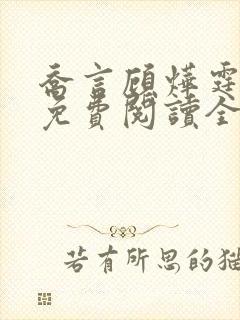 喬言顧燁霆
免費閱讀全
若有所思的猫